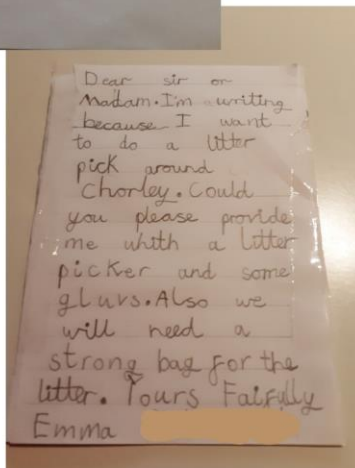 Dear sir or
Madam. I'm writing
because I want
to do a litter
pick around
Chorley. Could
you please provide
me whith a litter
picker and some
gluvs. Also we
will need a
strong bag for the
litter. Yours Faifully
Emma